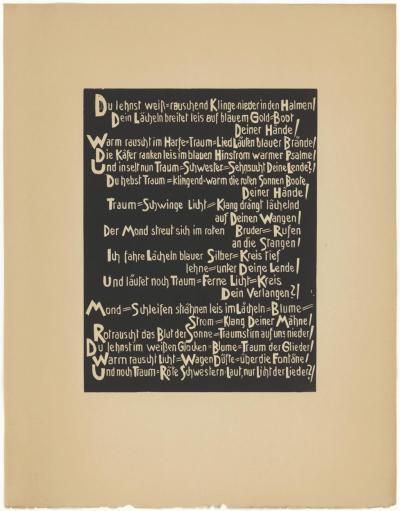 Du lehnst weiß=rauschend Klinge nieder in den Halmen!
Dein Lächeln breitet leis auf blauem Gold=Boot
Deiner Hände!
Warm rauscht im Harfe=Traum=Lied Läuten blauer Brände!
Die Käfer ranken leis im blauen Hinstrom warmer Psalme!
Und inselt nun Traum=Schwester=Sehnsucht Deine Lende?!
Du hebst Traum=klingend=warm die roten Sonnen Boote
Deiner Hände!
Traum=Schwinge Licht=Klang drängt lächelnd
auf Deinen Wangen!
Der Mond streut sich im roten Bruder=Rufen
an die Stangen!
Ich fahre Lächeln blauer Silber=Kreis tief
lehne=unter Deine Lende!
Und läutet noch Traum=Ferne Licht=Kreis
Dein Verlangen?!
Mond=Schleifen strähnen leis im Lächeln=Blume=
Strom=Klang Deiner Mähne!
Rot rauscht das Blut der Sonne=Traumstirn auf uns nieder!
Du lehnst im weißen Glocken=Blume=Traum der Glieder!
Warm rauscht Licht=Wagen Düfte=über die Fontäne!
Und noch Traum=Röte Schwestern=Laut, nur Licht der Lieder?!